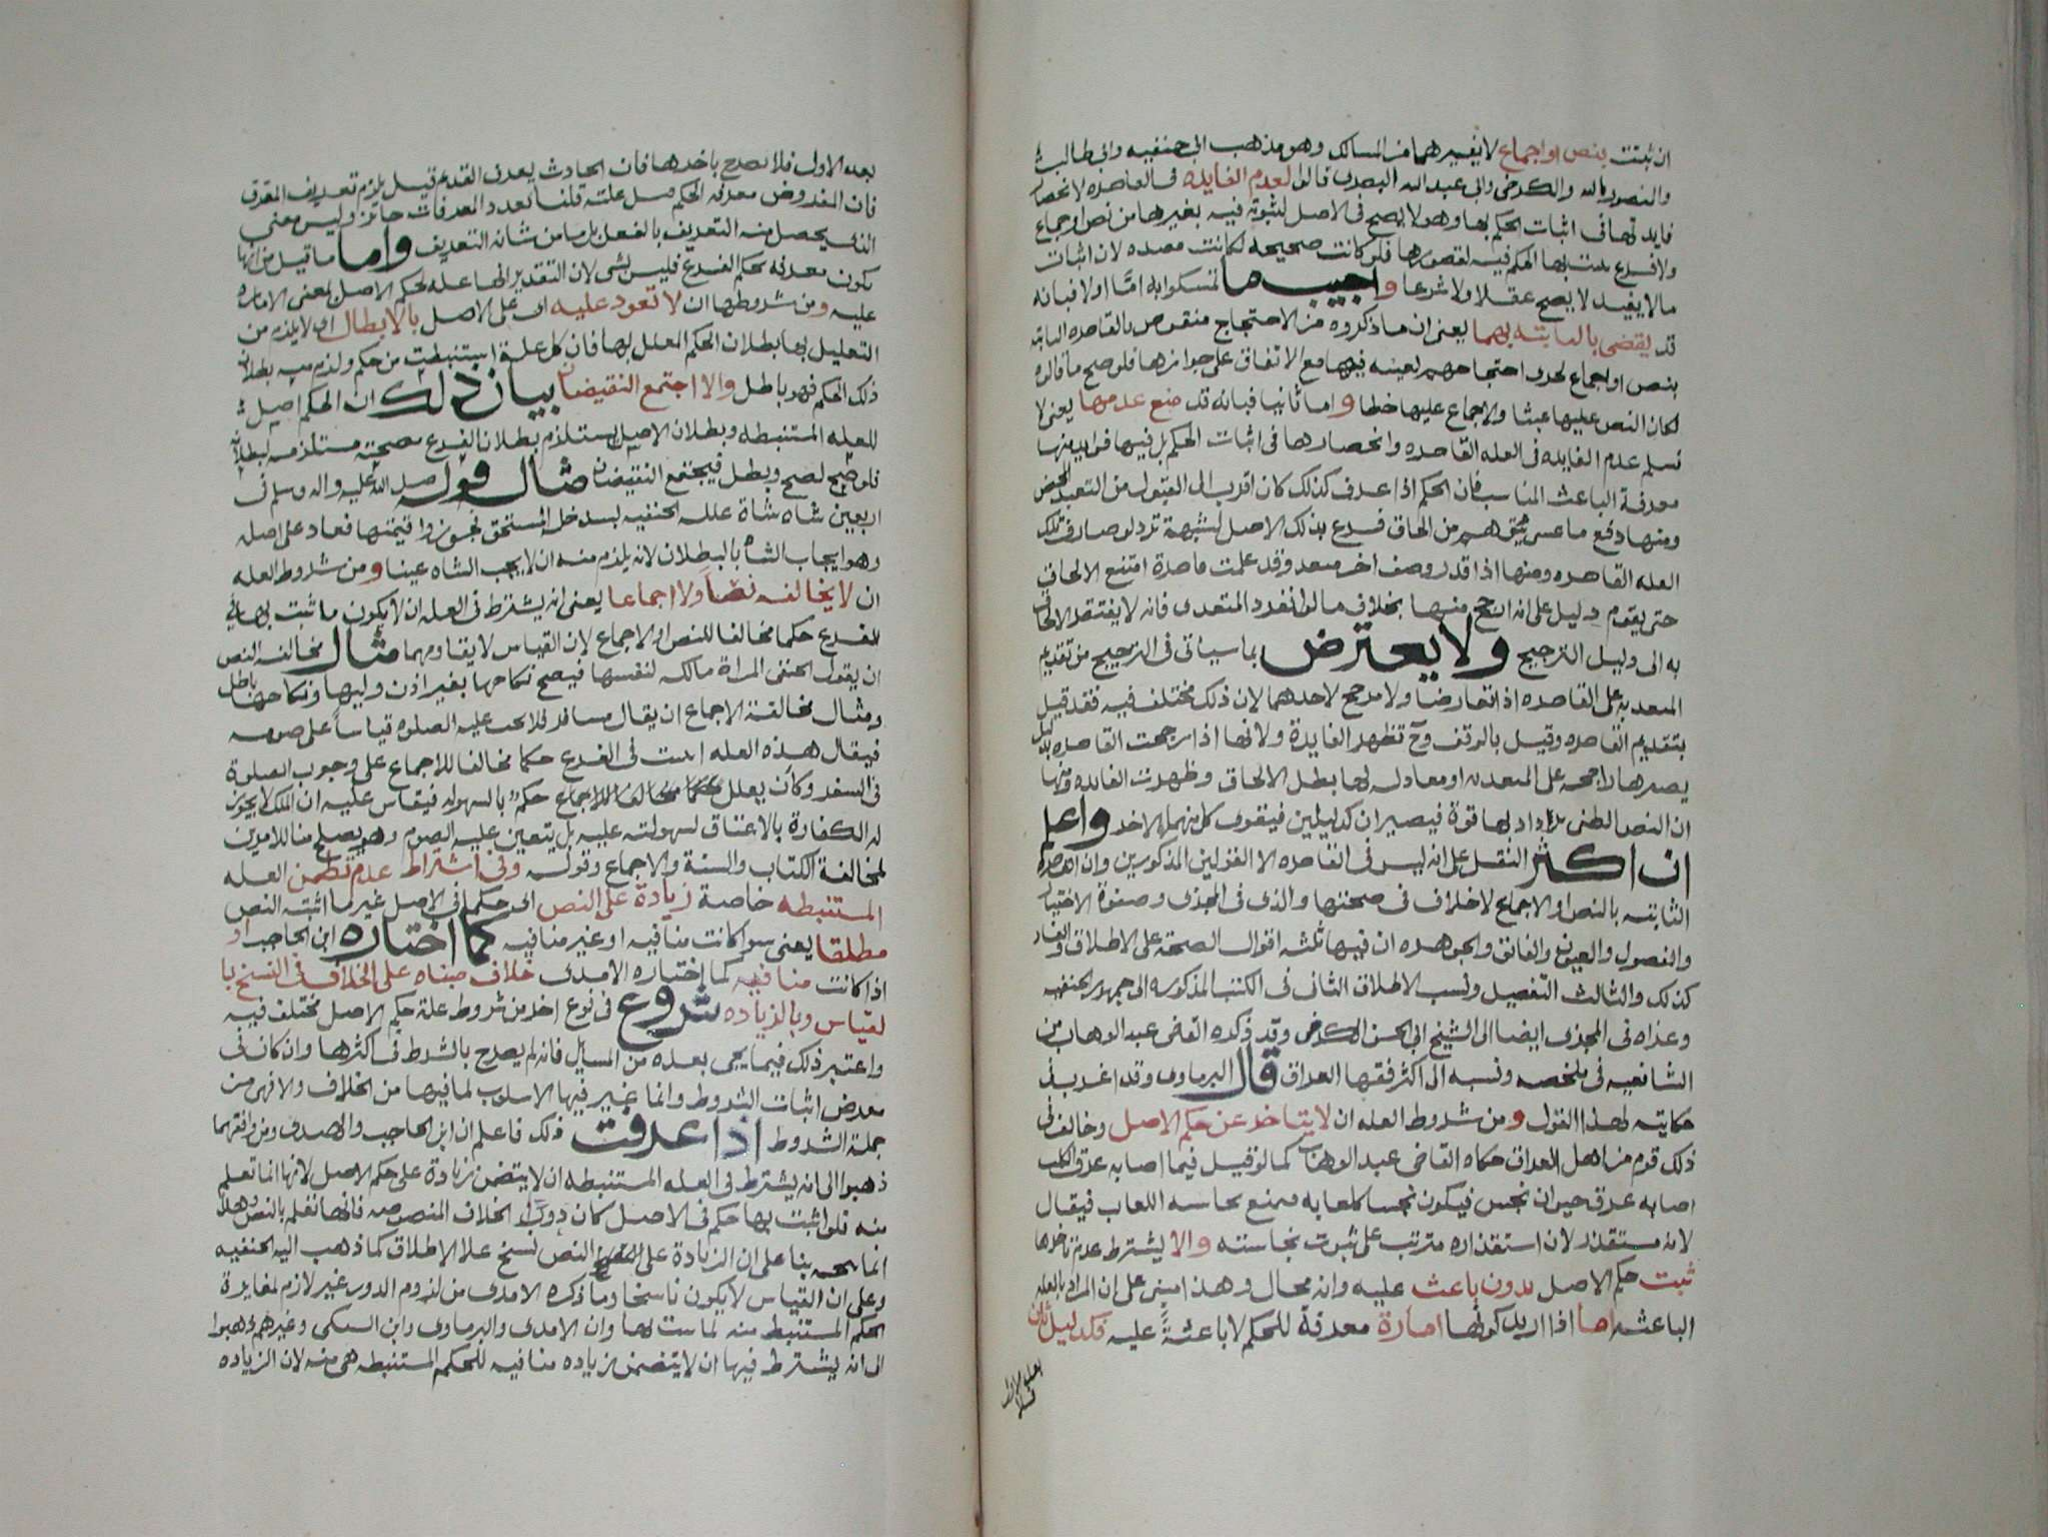 ان ثبتت بنص او اجماع لا بغيرهما من المسالك وهو مذهب ابي حنيفه وابي طالب
والمنصور بالله والكرخي وابي عبد الله البصري قالوا لعدم الفايده في القاصره لانحصار
فايدتها في اثبات الحكم بها وهو لا يصح في الاصل لثبوته فيه بغيرها من نص او اجماع
ولا فرع يثبت بها الحكم فيه لقصورها فلو كانت صحيحه لكانت مفيده لان اثبات
ما لا يفيد لا يصح عقلا ولا شرعا واجيب ما تمسكوا به امّا اولا فبانه
قد يقضى بالثابته بهما يعني ان ما ذكروه من الاحتجاج منقوض بالقاصره الثابته
بنص او اجماع لجري احتجاجهم بعينه فيها مع الاتفاق على جوازها فلو صح ما قالوه
لكان النص عليها عبثا والاجماع عليها خطا واما ثانيا فبانه قد منع عدمها يعني لا
نسلم عدم الفايده في العله القاصره وانحصارها في اثبات الحكم بل فيها فوايد منها
معرفة الباعث المناسب فان الحكم اذا عرف كذلك كان اقرب الى القبول من التعبد المحض
ومنها دفع ما عسى يتوهم من الحاق فرع بذلك الاصل لشبهة تردلو صارف تلك
العله القاصره ومنها اذا قدر وصف اخر متعد وقد علمت قاصرة امتنع الالحاق
حتى يقوم دليل على انه ارجح منها بخلاف ما لو انفرد المتعدى فانه لا يفتقر الالحاق
به الى دليل الترجيح ولا يعترض بما سياتي في الترجيح من تقديم
المتعديه على القاصره اذا تعارضا ولا مرجح لاحدهما لان ذلك مختلف فيه فقد قيل
بتقديم القاصره وقيل بالوقف وح تظهر الفايدة ولانها اذا رجحت القاصره بدليل
يصيرها راجحه على المتعديه او معادله لها بطل الالحاق وظهرت الفايده ومنها
ان النص الظني يزداد بها قوة فيصيران كدليلين فيتقوى كل منهما بالاخر واعلم
ان اكثر النقل على انه ليس في القاصره الا القولين المذكورين وان القاصره
الثابته بالنص او الاجماع لا خلاف في صحتها والذي في المجزى وصفوة الاختيار
والفصول والعيون والفائق والجوهره ان فيها ثلثه اقوال الصحة على الاطلاق والفساد
كذلك والثالث التفصيل ونسب الاطلاق الثاني في الكتب المذكوره الى جمهور الحنفيه
وعزاه في المجزى ايضا الى الشيخ ابي الحسن الكرخي وقد ذكره القاضي عبد الوهاب من
الشافعيه في ملخصه ونسبه الى اكثر فقها العراق قال البرماوى وقد اغرب في
حكايته لهذا القول ومن شروط العله ان لا يتاخر عن حكم الاصل وخالف في
ذلك قوم من اهل العراق حكاه القاضي عبد الوهاب كما لو قيل فيما اصابه عرق الكلب
اصابه عرق حيوان نجس فيكون نجسا كلعابه فيمنع نجاسه اللعاب فيقال
لانه مستقذر لان استقذاره مترتب على ثبوت نجاسته والا يشترط عدم تاخرها
ثبت حكم الاصل بدون باعث عليه وانه محال وهذا مبني على ان المراد بالعله
الباعثه اما اذا اريد كونها امارة معرفة للحكم لا باعثةً عليه فكدليل ثان
بعده الاول فلا يصح باخرها فان الحادث يعرف القديم قيل يلزم تعريف المعرف
فان المفروض معرفة الحكم قبل علته قلنا تعدد المعرفات جائز وليس معنى
الذي يحصل منه التعريف بالفعل بل ما من شانه التعريف واما ما قيل من انها
تكون معرفه بحكم الفرع فليس بشي لان التقدير انها عله لحكم الاصل بمعنى الاماره
عليه ومن شروطها ان لا تعود عليه اي على الاصل بالابطال اي لا يلزم من
التعليل بها بطلان الحكم المعلل بها فان كل علة استنبطت من حكم ولزم منه بطلان
ذلك الحكم فهو باطل والا اجتمع النقيضان بيان ذلك ان الحكم اصل
للعله المستنبطه وبطلان الاصل يستلزم بطلان الفرع فصحته مستلزمه لبطلان
فلو صح لصح وبطل فيجتمع النقيضان مثال قوله صلى الله عليه واله وسلم في
اربعين شاه شاة علله الحنفيه بسد خلة المستحق فجوزوا قيمتها فعاد على اصله
وهو ايجاب الشاه بالبطلان لانه يلزم منه ان لا يجب الشاه عينا ومن شروط العله
ان لا يخالف نصّا ولا اجماعا يعني انه يشترط في العله ان لا يكون ما ثبت بها في
الفرع حكما مخالفا للنص او الاجماع لان القياس لا يقاومهما مثال مخالفه النص
ان يقول الحنفي المراة مالكه لنفسها فيصح نكاحها بغير اذن وليها ونكاحها باطل
ومثال مخالفة الاجماع ان يقال مسافر فلا يجب عليه الصلوه قياسا على صومه
فيقال هذه العله اثبتت في الفرع حكما مخالفا للاجماع على وجوب الصلوة
في السفر وكأن يعلل حكما مخالفا للاجماع حكم بالسهوله فيقاس عليه ان الملك لا يجوز
له الكفارة بالاعتاق لسهولته عليه بل يتعين عليه الصوم وهو يصلح مثالا لامرين
لمخالفة الكتاب والسنة والاجماع وقوله وفي اشتراط عدم تضمن العله
المستنبطه خاصة زيادة على النص اي حكما في الاصل غير ما اثبته النص
مطلقا يعني سوا كانت منافيه او غير منافيه كما اختاره ابن الحاجب او
اذا كانت منافيه كما اختاره الامدي خلاف مبناه على الخلاف في النسخ با
لقياس وبالزياده شروع في نوع اخر من شروط علة حكم الاصل مختلف فيه
واعتبر ذلك فيما يجي بعده من المسايل فانه لم يصرح بالشرط في اكثرها وان كان في
معرض اثبات الشروط وانما غير فيها الاسلوب لما فيها من الخلاف والا فهي من
جملة الشروط اذا عرفت ذلك فاعلم ان ابن الحاجب والامدى ومن وافقهما
ذهبوا الى انه يشترط في العله المستنبطه ان لا يتضمن زيادة على حكم الاصل لانها انما تعلم
منه فلو اثبت بها حكم في الاصل كان دورا بخلاف المنصوصه فانها تعلم بالنص وهذا
انما يصح بنا على ان الزيادة على النص نسخ على الاطلاق كما ذهب اليه الحنفيه
وعلى ان القياس لا يكون ناسخا وما ذكره الامدى من لزوم الدور غير لازم لمغايرة
الحكم المستنبط منه لما ثبت بها وان الامدى والبرماوى وابن السبكي وغيرهم ذهبوا
الى انه يشترط فيها ان لا يتضمن زياده منافيه للحكم المستنبطه هي منه لان الزياده